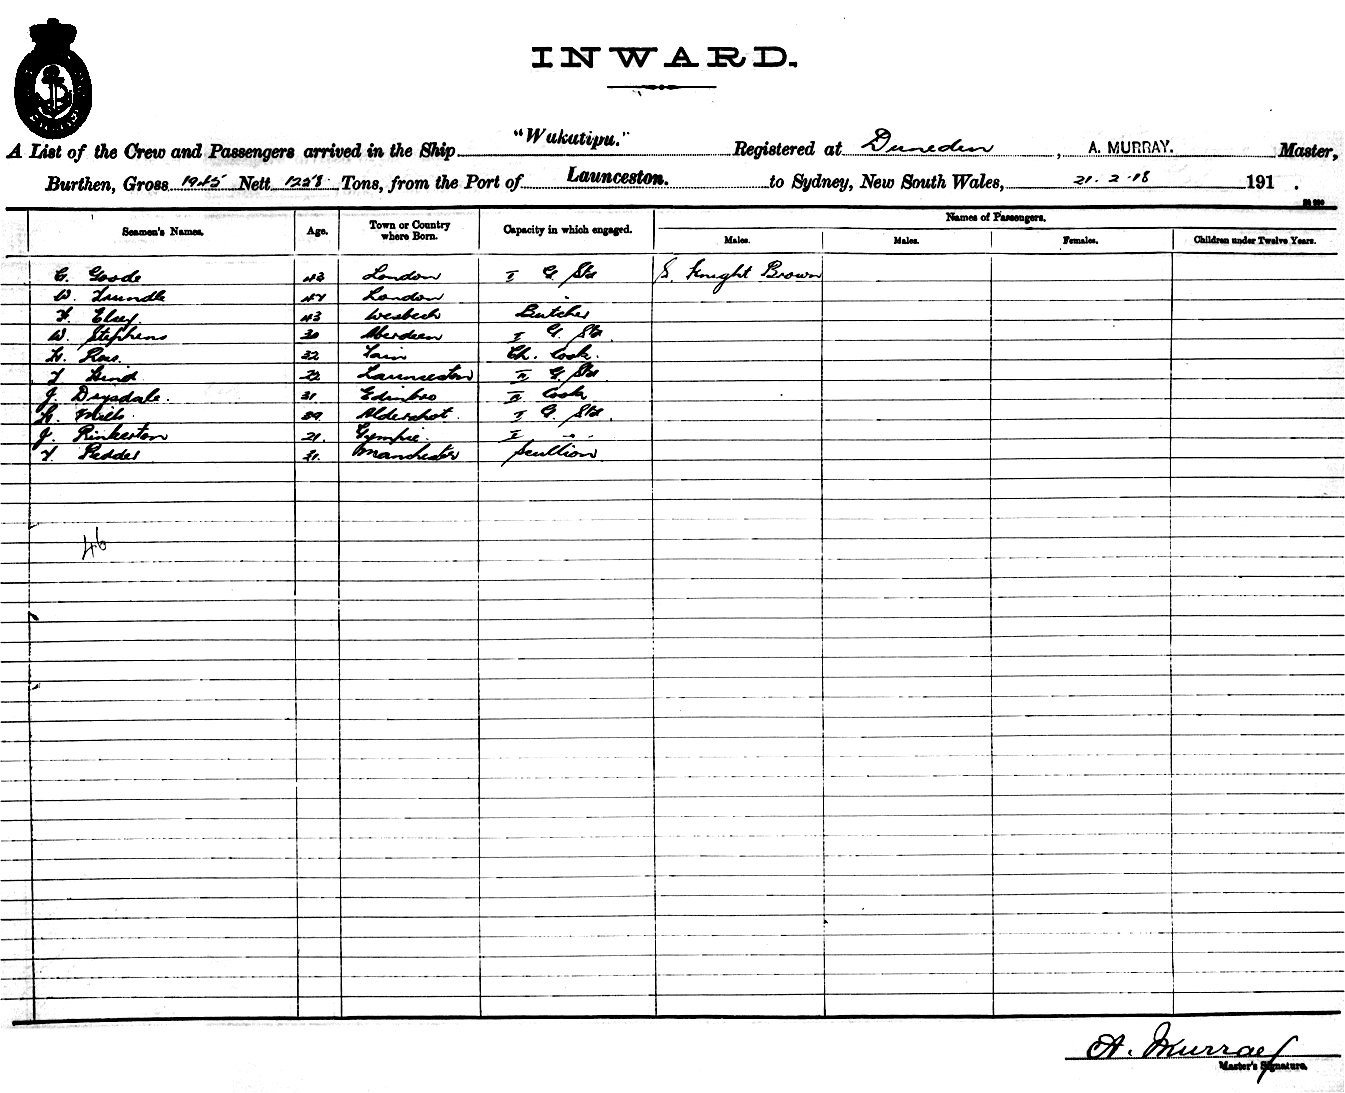 INWARD.
A List of the Crew and Passengers arrived in the Ship "Wakatipu." Registered at Dunedin, A. MURRAY. Master,
Burthen, Gross 1945 Nett 1258 Tons, from the Port of Launceston. to Sydney, New South Wales, 21.2.18 191 .
Names of Passengers.
Seamen's Names. Age. Town or Country where Born. Capacity in which engaged. Males. Males. Females. Children under Twelve Years.
C. Goode 43 London I G. Std S. Knight Brown
W. Trundle 47 London "
F. Elsey 43 Wisbech Butcher
W. Stephens 30 Aberdeen I G. Std.
H. Ross. 32 Tain Ch. Cook.
T Hind 22 Launceston II G. Std
J. Drysdale. 31 Edinbro II Cook
H. Mills 39 Aldershot. I G. Std.
J. Pinkerton 21. Gympie. I " "
T. Pedder 31. Manchester Scullion
46
A. Murray
Master's Signature.